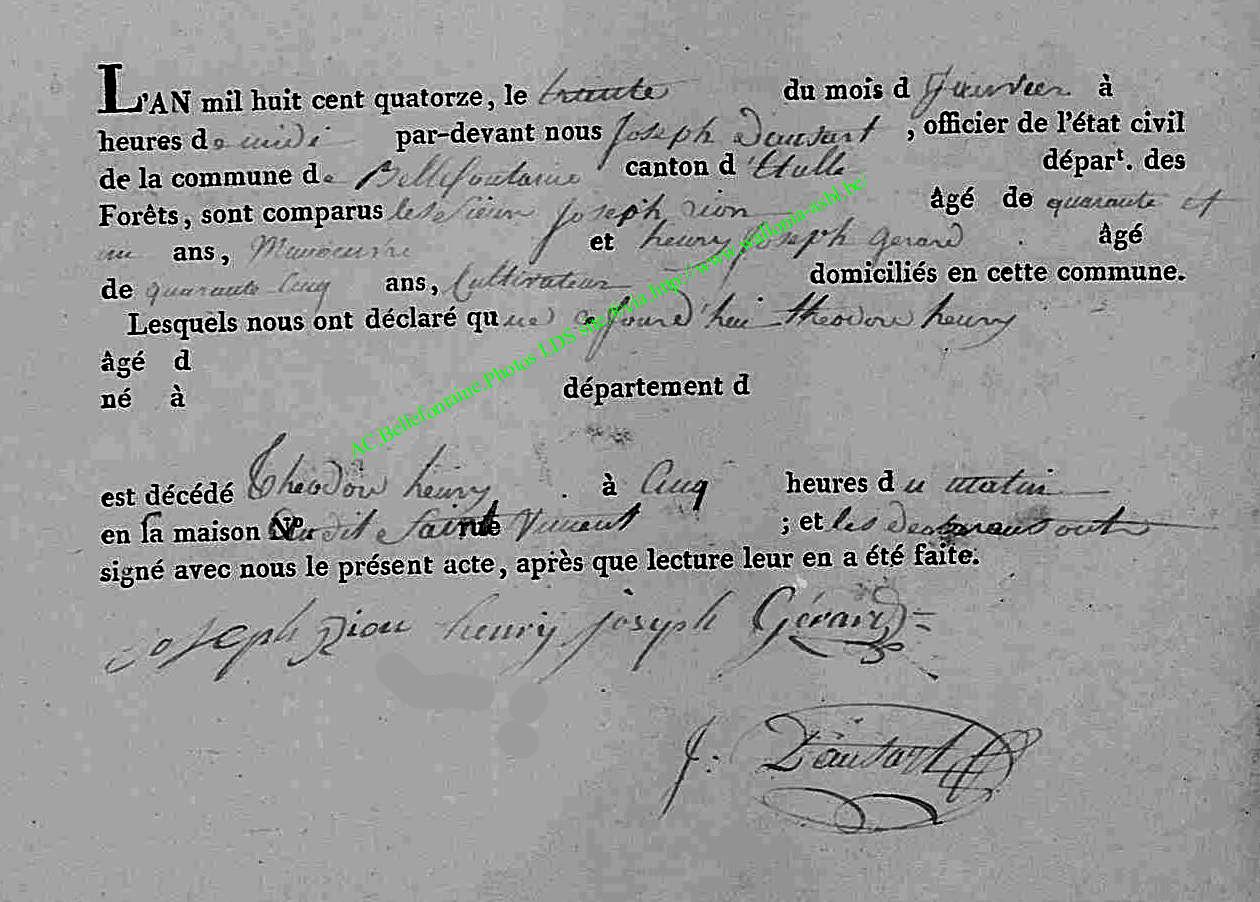 L'AN mil huit cent quatorze, le trante du mois d Janvier à
heures de midi par-devant nous Joseph Dautart, officier de l'état civil
de la commune de Bellefontaine canton d'Etalle départ. des
Forêts, sont comparus le Sieur Joseph rion âgé de quarante et
un ans, Manoeuvre et henry Joseph Gerard . âgé
de quarante Cinq ans, Cultivateur domiciliés en cette commune.
Lesquels nous ont déclaré que aujourd'hui theodore henry
âgé d
né à département d
est décédé Theodore henry . à Cinq heures du matin
en sa maison N.º dit Saint rue Vincent ; et les declarans ont
signé avec nous le présent acte, après que lecture leur en a été faite.
joseph Riou henry joseph Gérard
J: Dautart
AC Bellefontaine.Photos LDS site fr via http://www.wallonia-asbl.be/